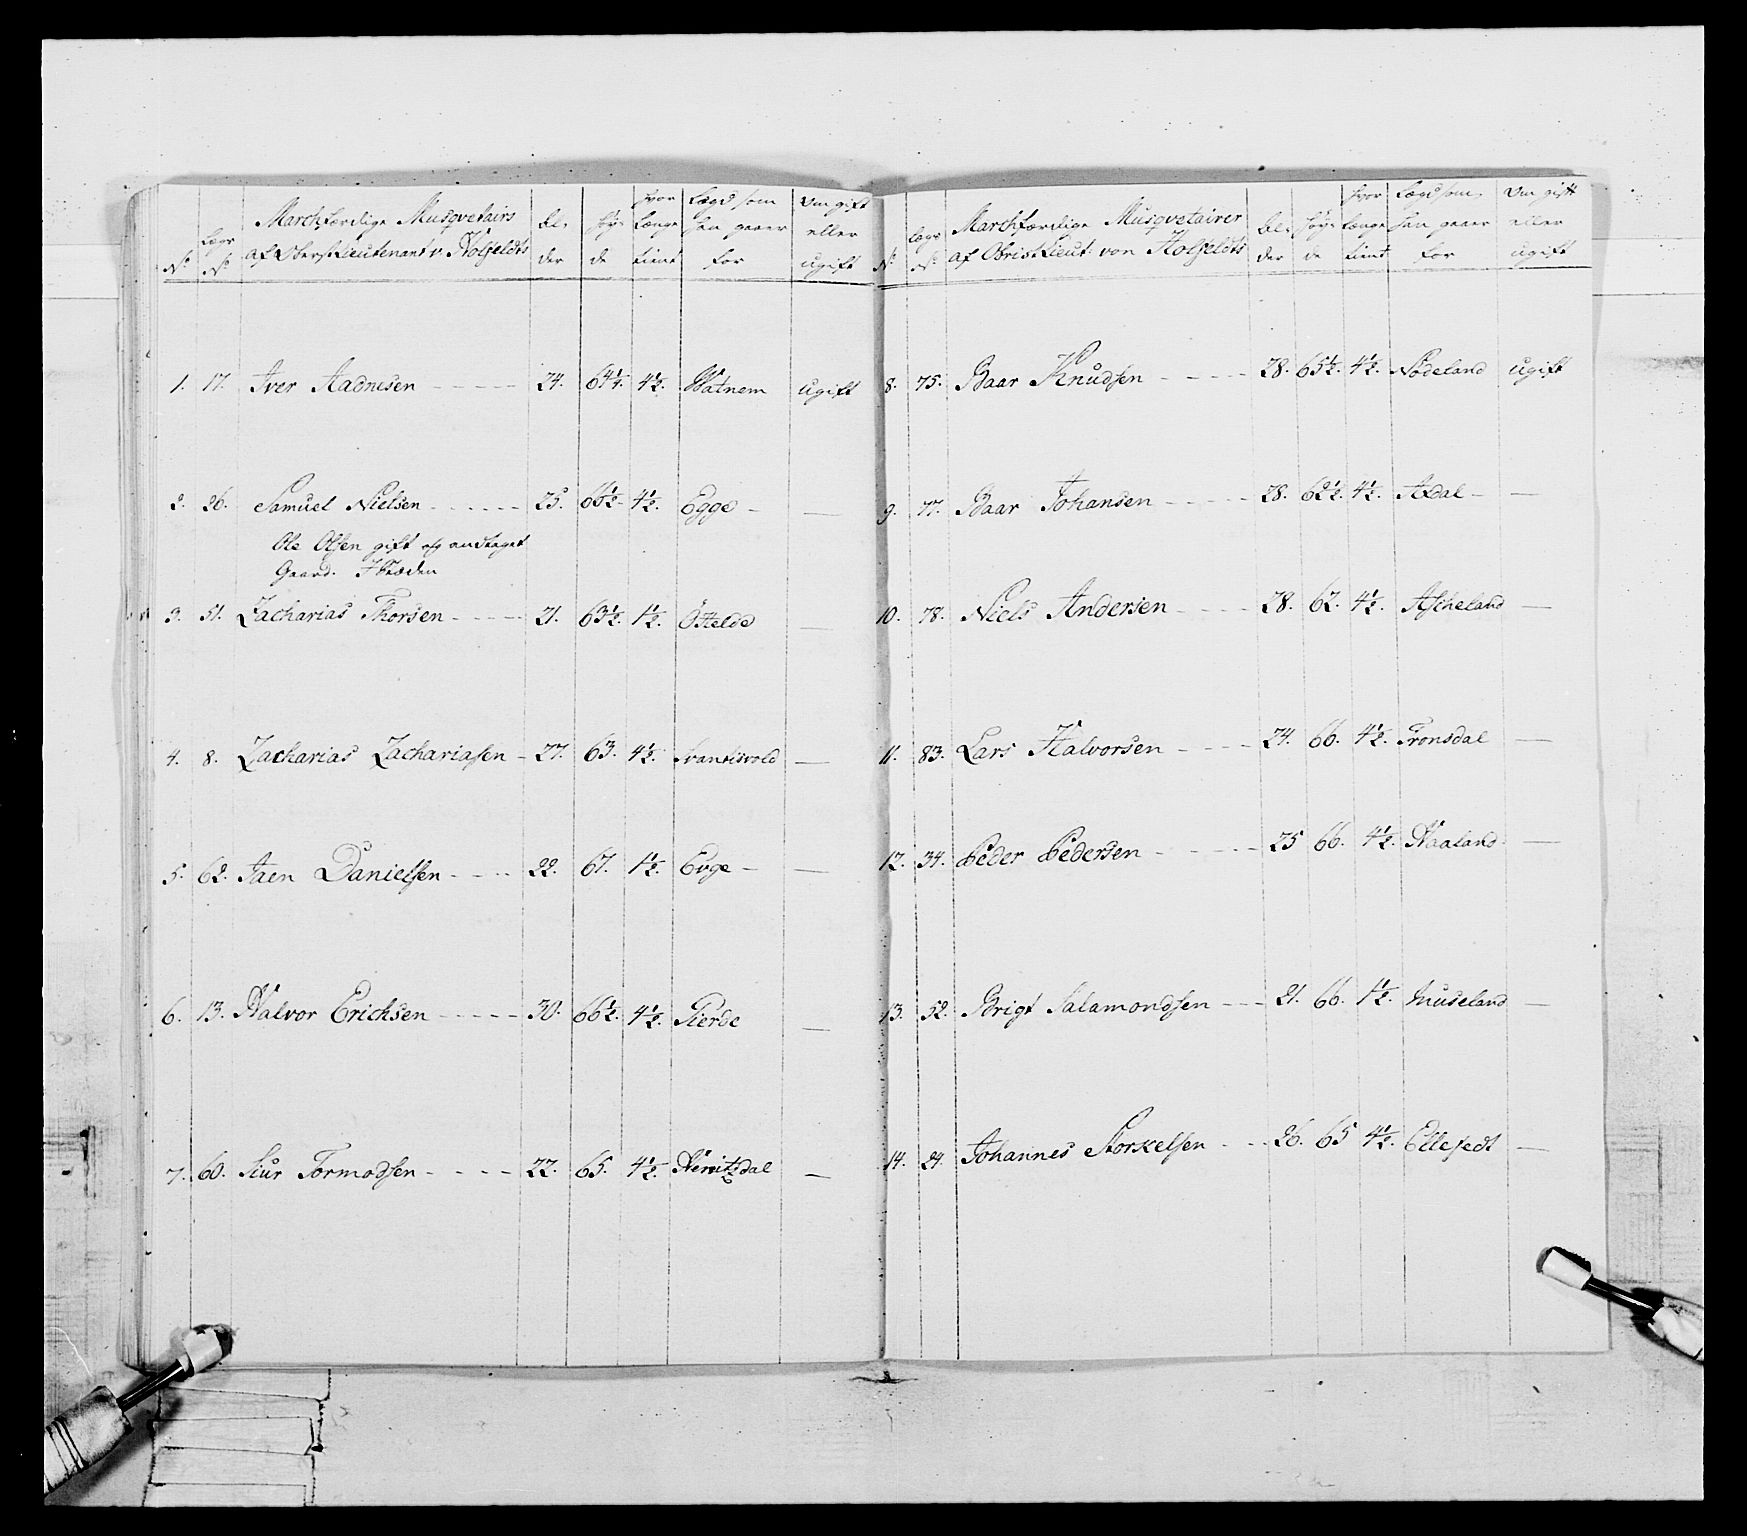 No. Lægs No. Marchfærdige Musqvetairs af Oberst Lieutenant v. Holfeldts Al- der Høy- de hvor længe tient Lægd som han staaer for Om gift eller ugift
1. 17. Iver Aadnesen - - - - - 24. 64 1/4. 4 1/2. Watnem ugift
2. 26. Samuel Nielsen - - - - - - 25. 66 1/2. 4 1/2. Egge - —
Ole Olsen gift og andtaget
Gaard. I Stæden
3. 51. Zacharias Thorsen - - - - - 21. 63 1/2. 1 1/2. —
4. 8. Zacharias Zachariasen - 27. 63. 4 1/2. Svantisvold —
5. 62. Taen Danielsen - - - - 22. 67. 1 1/2. Evge - —
6. 13. Halvor Erichsen - - - - - 30. 66 1/2. 4 1/2. Gierde —
7. 60. Siur Tormodsen - - - - - 22. 65. 4 1/2. —
No. Lægs No. Marchfærdige Musqvetairer af Obrist Lieut: von Holfeldts Al- der Høy- de hvor længe tient Lægd som han staaer for Om gift eller ugift
8. 75. Baar Knudsen - - - - 28. 65 1/2. 4 1/2. Nødeland ugift
9. 77. Baar Johansen - - - - - 28. 62 1/2. 4 1/2. Axdal - —
10. 78. Niels Andersen - - - - 28. 62. 4 1/2. Ascheland —
11. 83. Lars Halvorsen - - - - 24. 66. 4 1/2. Tronsdal —
12. 34. Peder Pedersen - - - - - 25 66. 4 1/2. Haaland. —
13. 52. Brigt Salamondsen - - - 21. 66. 1 1/2. Museland —
14. 24. Johannes Storkelsen - - - 26. 65 4 1/2. Ellefedt —